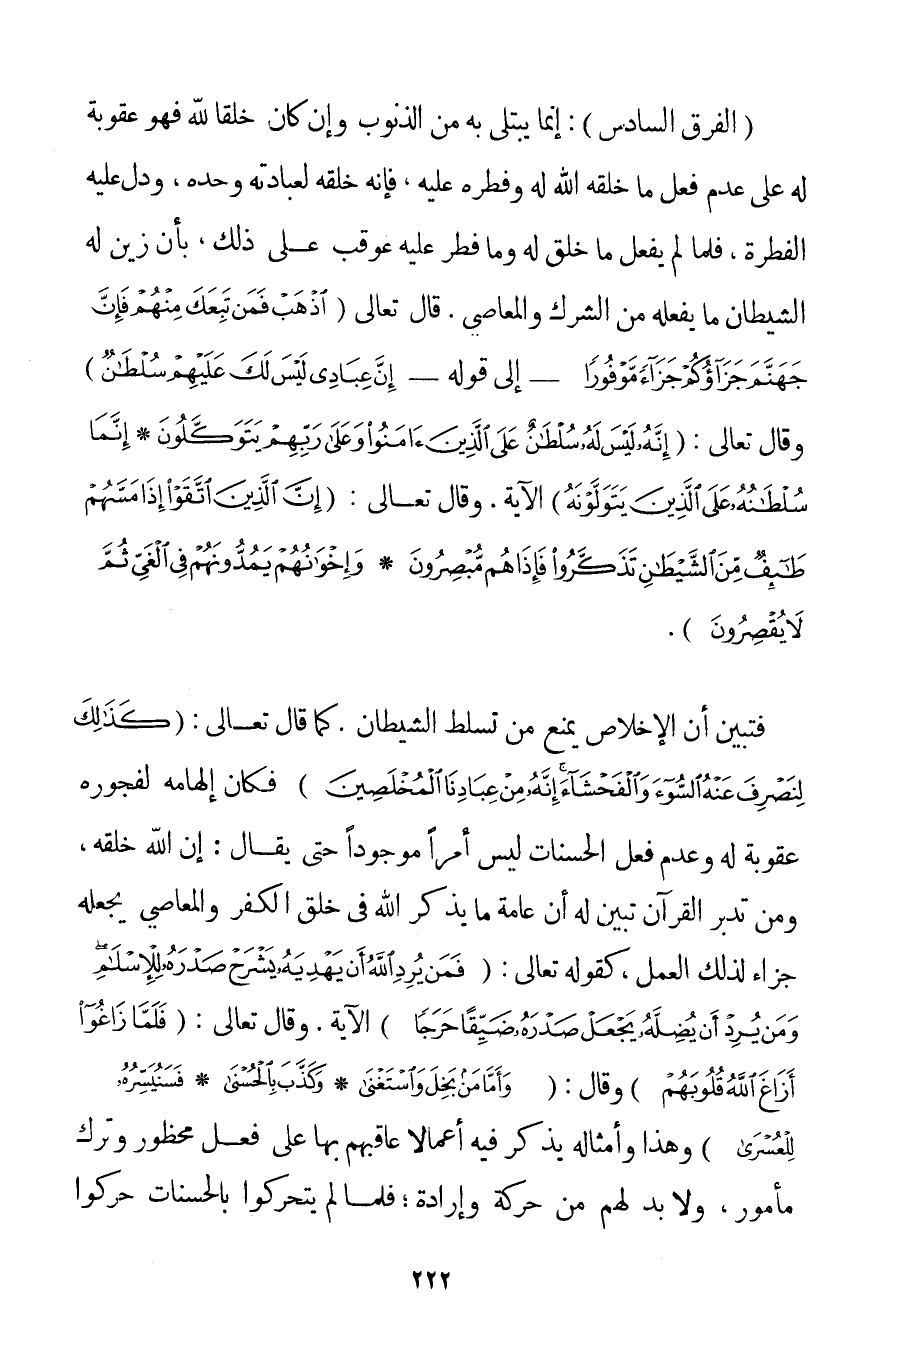 ( الفرق السادس ) : إنما يبتلى به من الذنوب وإن كان خلقا لله فهو عقوبة
له على عدم فعل ما خلقه الله له وفطره عليه ، فإنه خلقه لعبادته وحده ، ودل عليه
الفطرة ، فلما لم يفعل ما خلق له وما فطر عليه عوقب عـلى ذلك ، بأن زين له
الشيطان ما يفعله من الشرك والمعاصي . قال تعالى ( ٱذْهَبْ فَمَن تَبِعَكَ مِنْهُمْ فَإِنَّ
جَهَنَّمَ جَزَآؤُكُمْ جَزَآءً مَّوْفُورًا — إلى قوله — إِنَّ عِبَادِى لَيْسَ لَكَ عَلَيْهِمْ سُلْطَٰنٌ )
وقال تعالى : ( إِنَّهُۥ لَيْسَ لَهُۥ سُلْطَٰنٌ عَلَى ٱلَّذِينَ ءَامَنُوا۟ وَعَلَىٰ رَبِّهِمْ يَتَوَكَّلُونَ * إِنَّمَا
سُلْطَٰنُهُۥ عَلَى ٱلَّذِينَ يَتَوَلَّوْنَهُۥ ) الآية . وقال تعـالى : ( إِنَّ ٱلَّذِينَ ٱتَّقَوْا۟ إِذَا مَسَّهُمْ
طَٰٓئِفٌ مِّنَ ٱلشَّيْطَٰنِ تَذَكَّرُوا۟ فَإِذَا هُم مُّبْصِرُونَ * وَإِخْوَٰنُهُمْ يَمُدُّونَهُمْ فِى ٱلْغَىِّ ثُمَّ
لَا يُقْصِرُونَ ) .
فتبين أن الإخلاص يمنع من تسلط الشيطان . كما قال تعـالى : ( كَذَٰلِكَ
لِنَصْرِفَ عَنْهُ ٱلسُّوٓءَ وَٱلْفَحْشَآءَ ۚ إِنَّهُۥ مِنْ عِبَادِنَا ٱلْمُخْلَصِينَ ) فكان إلهامه لفجوره
عقوبة له وعدم فعل الحسنات ليس أمراً موجوداً حتى يقـال : إن الله خلقه ،
ومن تدبر القرآن تبين له أن عامة ما يذكر الله فى خلق الكفر والمعاصي يجعله
جزاء لذلك العمل ، كقوله تعالى : ( فَمَن يُرِدِ ٱللَّهُ أَن يَهْدِيَهُۥ يَشْرَحْ صَدْرَهُۥ لِلْإِسْلَٰمِ ۖ
وَمَن يُرِدْ أَن يُضِلَّهُۥ يَجْعَلْ صَدْرَهُۥ ضَيِّقًا حَرَجًا ) الآية . وقال تعالى : ( فَلَمَّا زَاغُوٓا۟
أَزَاغَ ٱللَّهُ قُلُوبَهُمْ ) وقال : ( وَأَمَّا مَنۢ بَخِلَ وَٱسْتَغْنَىٰ * وَكَذَّبَ بِٱلْحُسْنَىٰ * فَسَنُيَسِّرُهُۥ
لِلْعُسْرَىٰ ) وهذا وأمثاله يذكر فيه أعمالا عاقبهم بها على فعـل محظور وترك
مأمور ، ولا بد لهم من حركة وإرادة ؛ فلمـا لم يتحركوا بالحسنات حركوا
٢٢٢